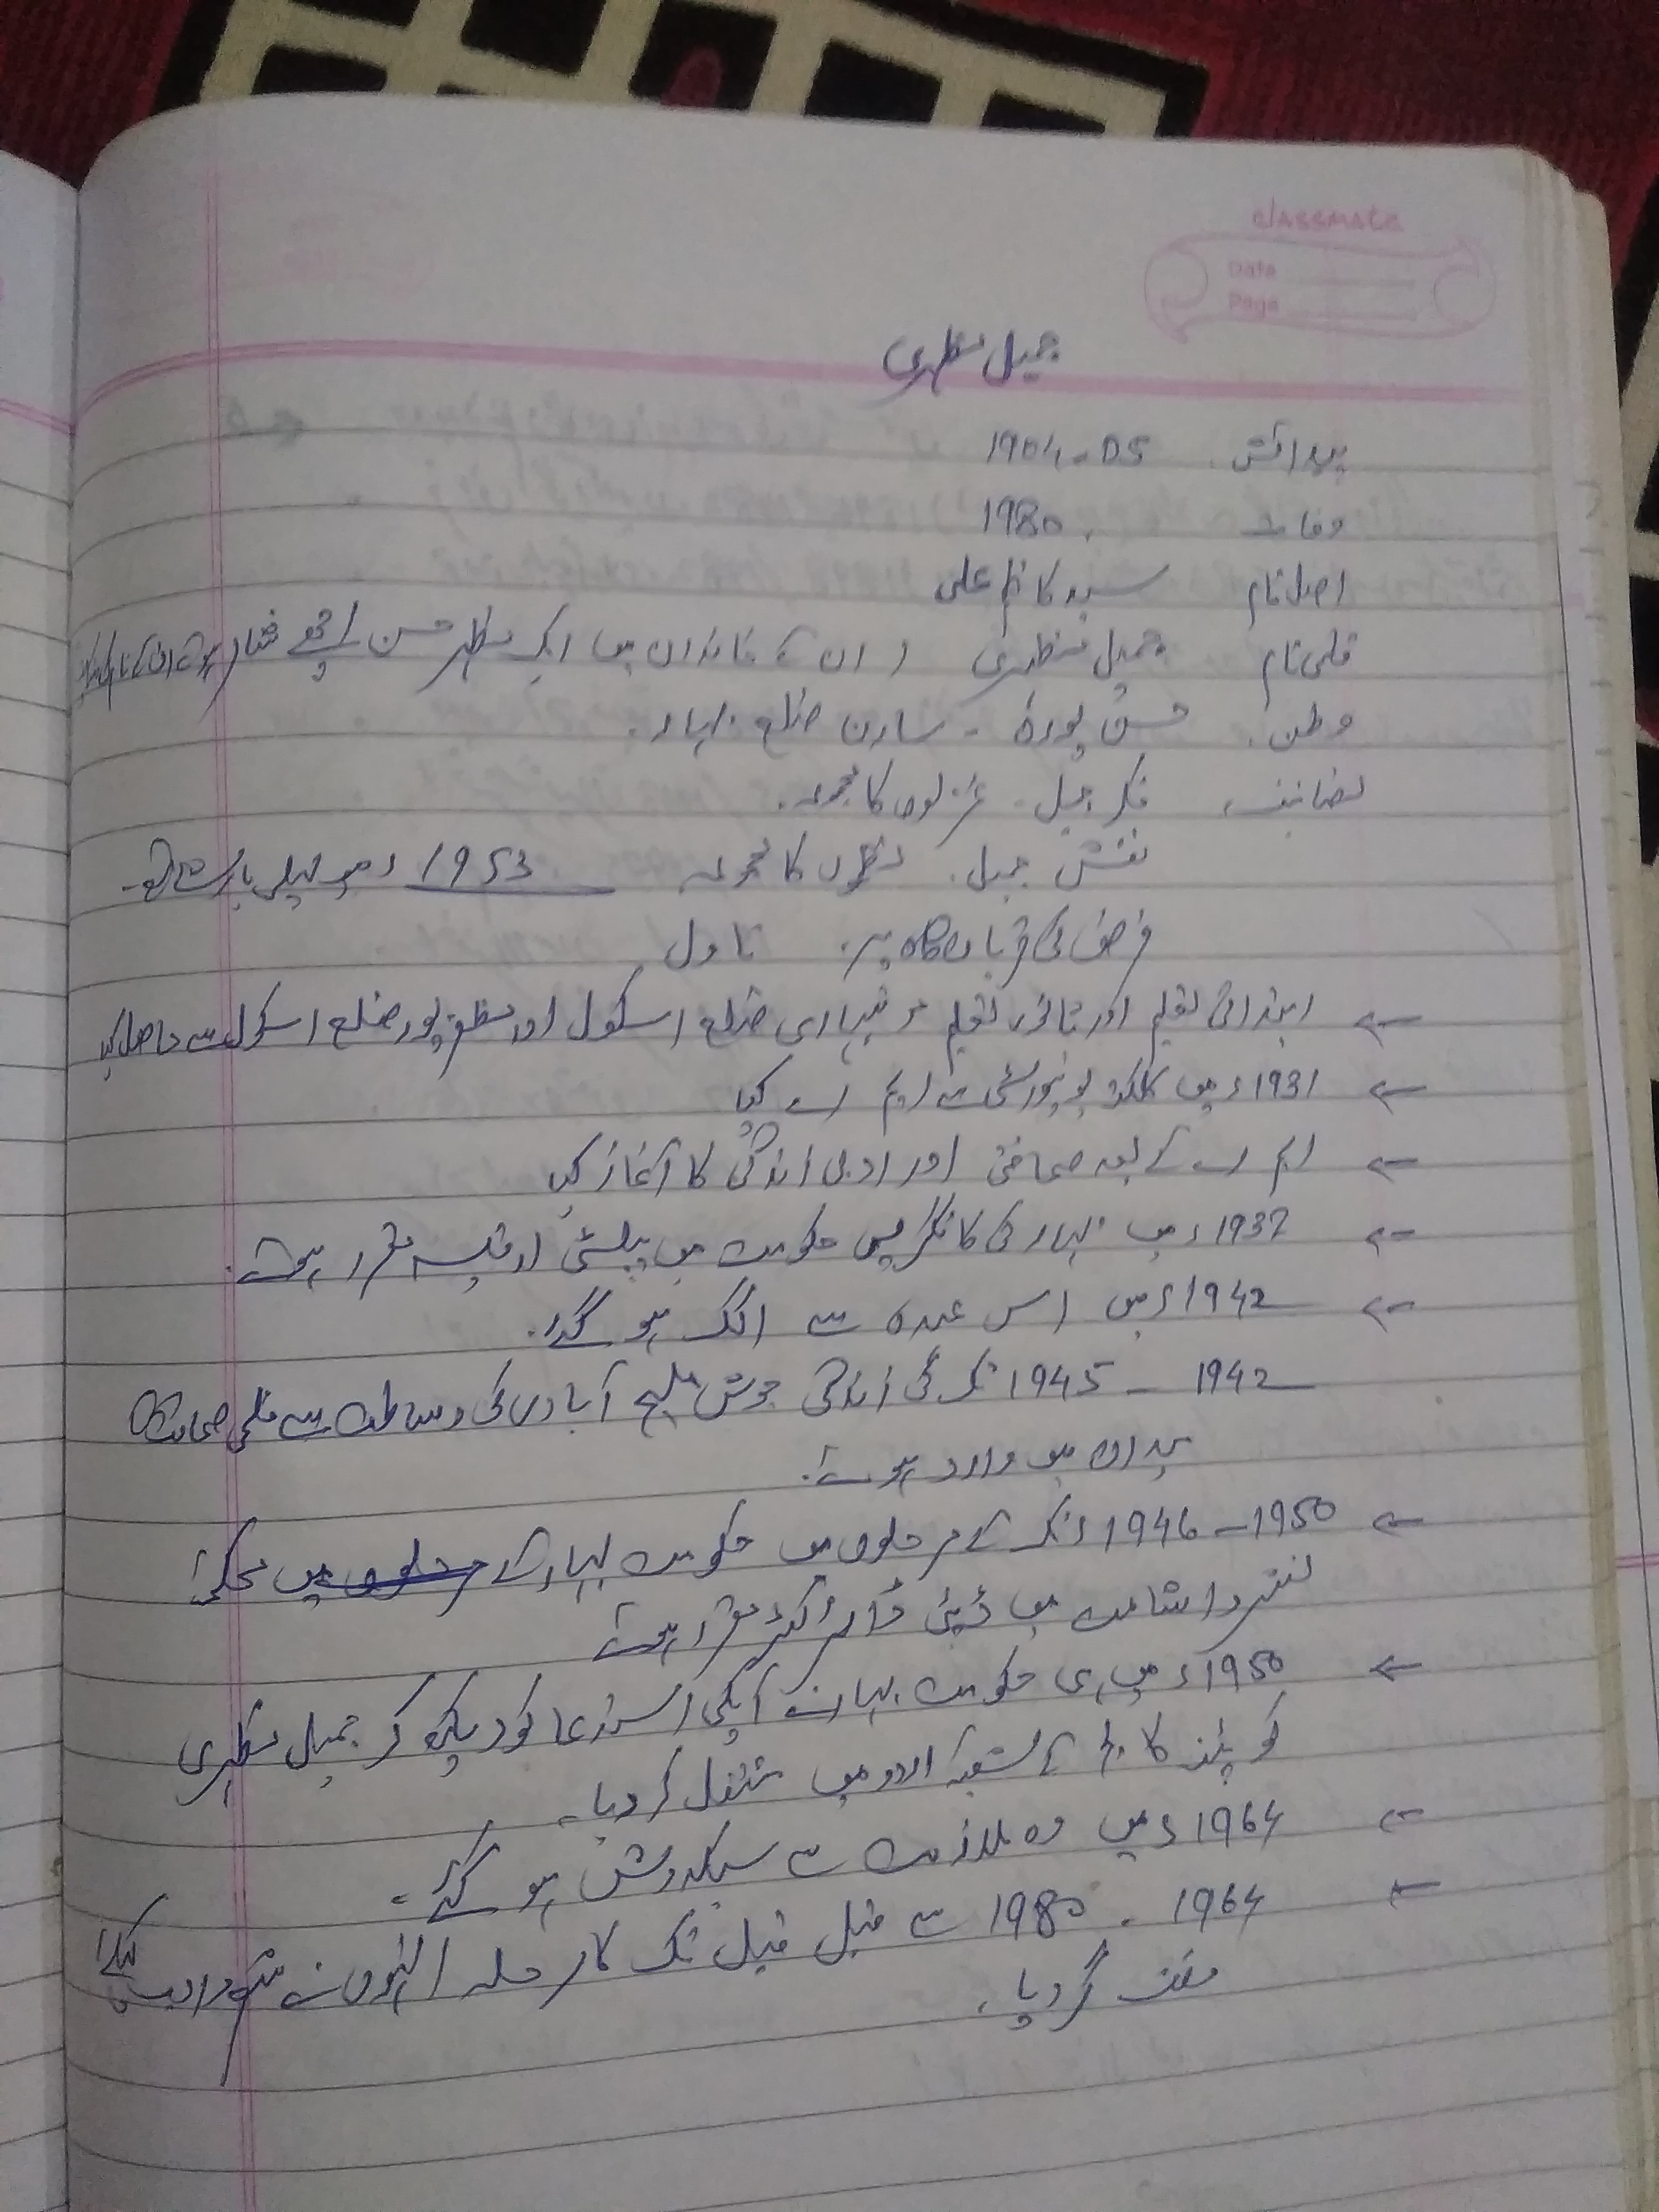 classmate
Date
Page
جمیل مظہری
پیدائش 1904-05
وفات 1980
اصل نام سید کاظم علی
قلمی نام جمیل مظہری ان کے خاندان میں ایک مظہر حسن اچھے
وطن حسن پورہ - سارن ضلع بہار
تصانیف فکر جمیل - غزلوں کا مجموعہ
نقش جمیل نظموں کا مجموعہ 1953ء میں پہلی بار شائع
فرض کی قربان گاہ پر ناول
ابتدائی تعلیم اور ثانوی تعلیم موتیہاری ضلع اسکول اور مظفر پور ضلع اسکول سے حاصل کی
1931ء میں کلکتہ یونیورسٹی سے ایم اے کیا
ایم اے کے بعد صحافتی اور ادبی زندگی کا آغاز کیا
1937ء میں بہار کی کانگریس حکومت میں پبلسٹی آفیسر مقرر ہوئے
1942ء میں اس عہدہ سے الگ ہو گئے
1942 - 1945 تک کی زندگی جوش ملیح آبادی کی وساطت سے فلمی
میں وارد ہوئے
1946-1950ء تک کے مرحلوں میں حکومت بہار کے مرحلوں میں محکمۂ
نشر و اشاعت میں ڈپٹی ڈائریکٹر مقرر ہوئے
1950ء میں ہی حکومت بہار نے آپکی استدعا کو دیکھ کر جمیل مظہری
کو پٹنہ کالج کے شعبۂ اردو میں منتقل کر دیا۔
1964ء میں وہ ملازمت سے سبکدوش ہو گئے۔
1964 - 1980 سے قبل قبل تک کا مرحلہ انہوں نے شعر و ادب کیلئے
وقف کر دیا